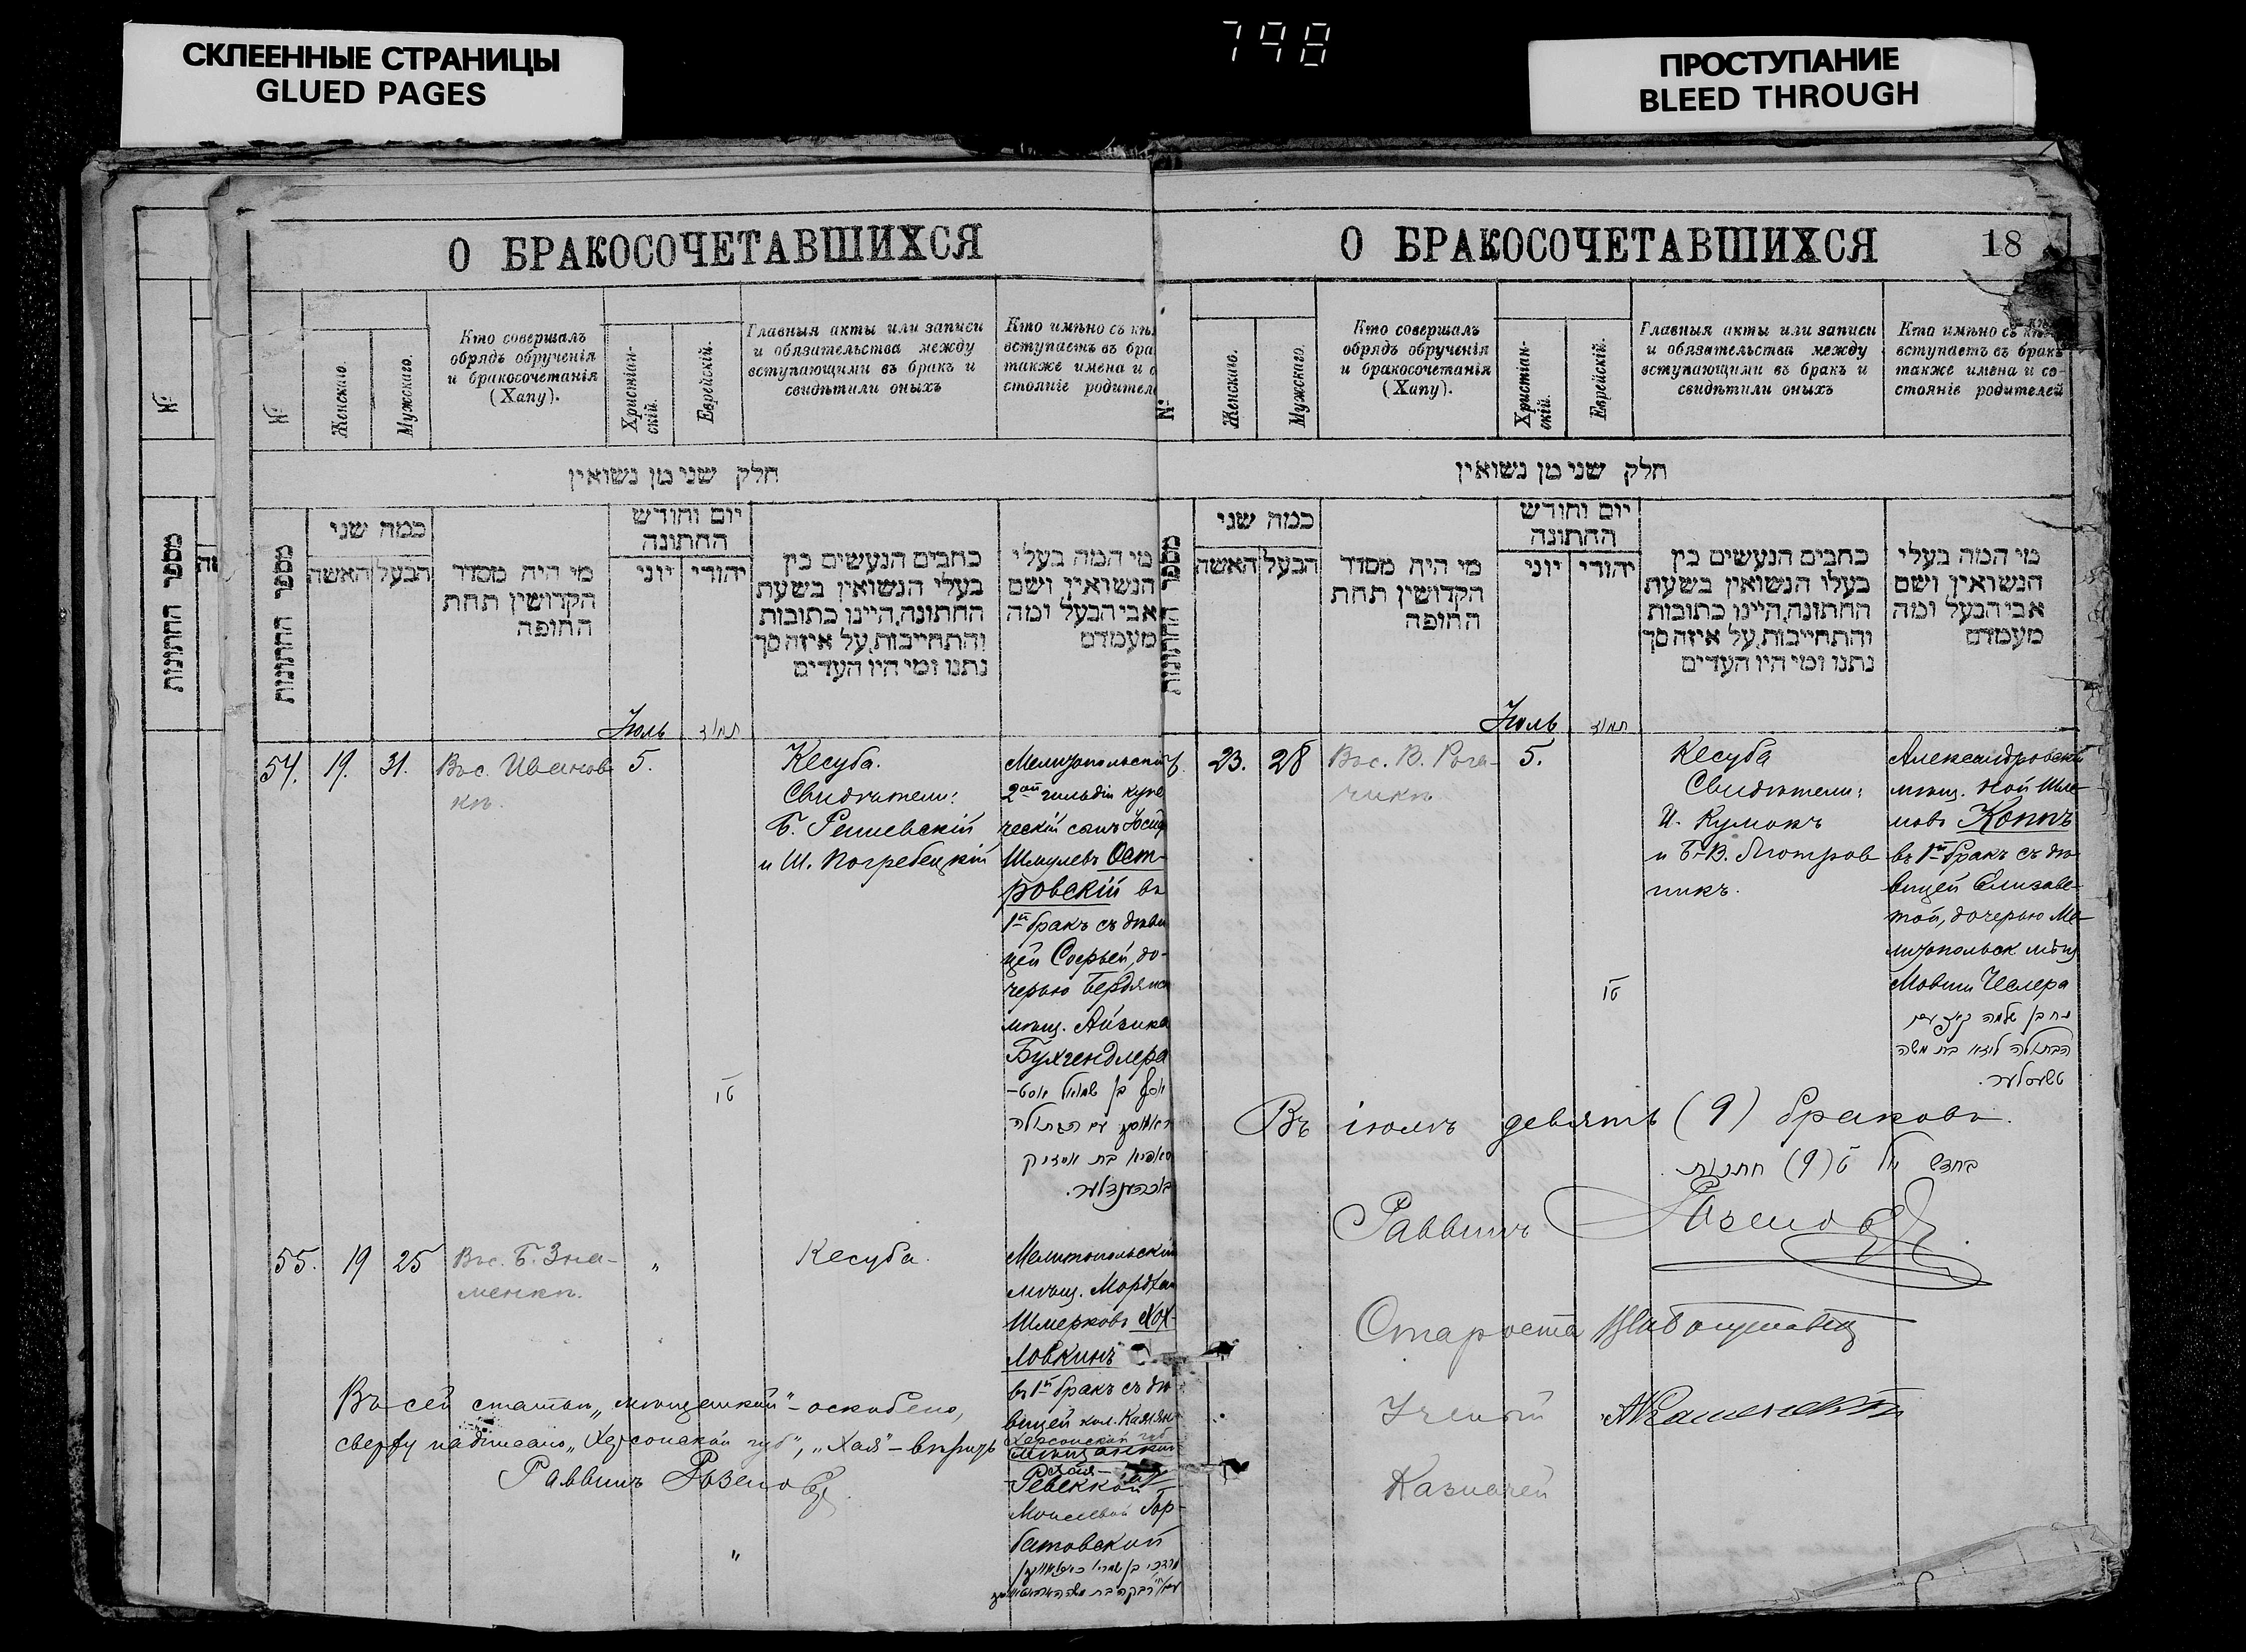 798
СКЛЕЕННЫЕ СТРАНИЦЫ
GLUED PAGES
ПРОСТУПАНИЕ
BLEED THROUGH
№
מספר החתונות
О БРАКОСОЧЕТАВШИХСЯ
№
Женскаго.
Мужскаго.
Кто совершалъ
обрядъ обрученія
и бракосочетанія
(Хапу).
Христіан-
скій.
Еврейскій.
Главныя акты или записи
и обязательства между
вступающими въ бракъ и
свидѣтили оныхъ
Кто имѣно съ кѣ
вступаетъ въ бра
также имена и с
стояніе родител
חלק שני מן נשואין
מספר החתונות
כמה שני
האשה
הבעל
מי היה מסדר
הקדושין תחת
החופה
יום וחודש
החתונה
יוני
יהודי
כתבים הנעשים בין
בעלי הנשואין בשעת
החתונה, היינו כתובות
והתחייבות, על איזה סך
נתנו ומי היו העדים
מי המה בעלי
הנשואין ושם
אבי הבעל ומה
מעמדם
Іюль
תמוז
54. 19. 31. Вос. Иванов-
кѣ.
5.
טו
Кесуба.
Свидѣтели:
Б. Решевскій
и Ш. Погребецкій
Мелитопольскій
2ой гильдіи купе
ческій сынъ Іосиф
Шмулевъ Ост-
ровскій въ
1й бракъ съ дѣви
цей Софьей, до-
черью Бердянск
мѣщ. Айзика
Бухгендлера
יוסף בן שמואל אסט-
עם הבתולה
סאפיא בת אייזיק
55. 19 25 Вос. Б. Зна-
менкѣ.
"
"
Кесуба.
Мелитопольскій
мѣщ. Мордхай
Шмерковъ Хох-
ловкинъ
въ 1й бракъ съ дѣ
вицей
Херсонской губ
Хая-
Ревеккой
Моисеевой Гор-
батовской
Въ сей статьѣ „мѣщанкой" – оскоблено,
сверху надписано „Херсонской губ", „Хая" – вѣрить
Раввинъ Розено
О БРАКОСОЧЕТАВШИХСЯ
18
№
Женскаго.
Мужскаго.
Кто совершалъ
обрядъ обрученія
и бракосочетанія
(Хапу).
Христіан-
скій.
Еврейскій.
Главныя акты или записи
и обязательства между
вступающими въ бракъ и
свидѣтили оныхъ
Кто имѣно съ кѣ
вступаетъ въ бракъ
также имена и со-
стояніе родителей
חלק שני מן נשואין
מספר החתונות
כמה שני
האשה
הבעל
מי היה מסדר
הקדושין תחת
החופה
יום וחודש
החתונה
יוני
יהודי
כתבים הנעשים בין
בעלי הנשואין בשעת
החתונה, היינו כתובות
והתחייבות, על איזה סך
נתנו ומי היו העדים
מי המה בעלי
הנשואין ושם
אבי הבעל ומה
מעמדם
Іюль
תמוז
23. 28 Вос. В. Рога-
чикѣ
5.
טו
Кесуба
Свидѣтели:
И. Кумокъ
Александровскій
мѣщ. Ной Шле-
мовъ Копъ
въ 1й бракъ съ дѣ-
вицей Елизаве-
той, дочерью Ме-
литопольск мѣщ
Мовши Чеслера
נח בן שלמה
הבתולה ליזא בת משה
טשעסלער.
Въ іюлѣ девять (9) браковъ.
בחדש יולי ט (9) חתנות.
Раввинъ
Староста
Ученый
Казначей